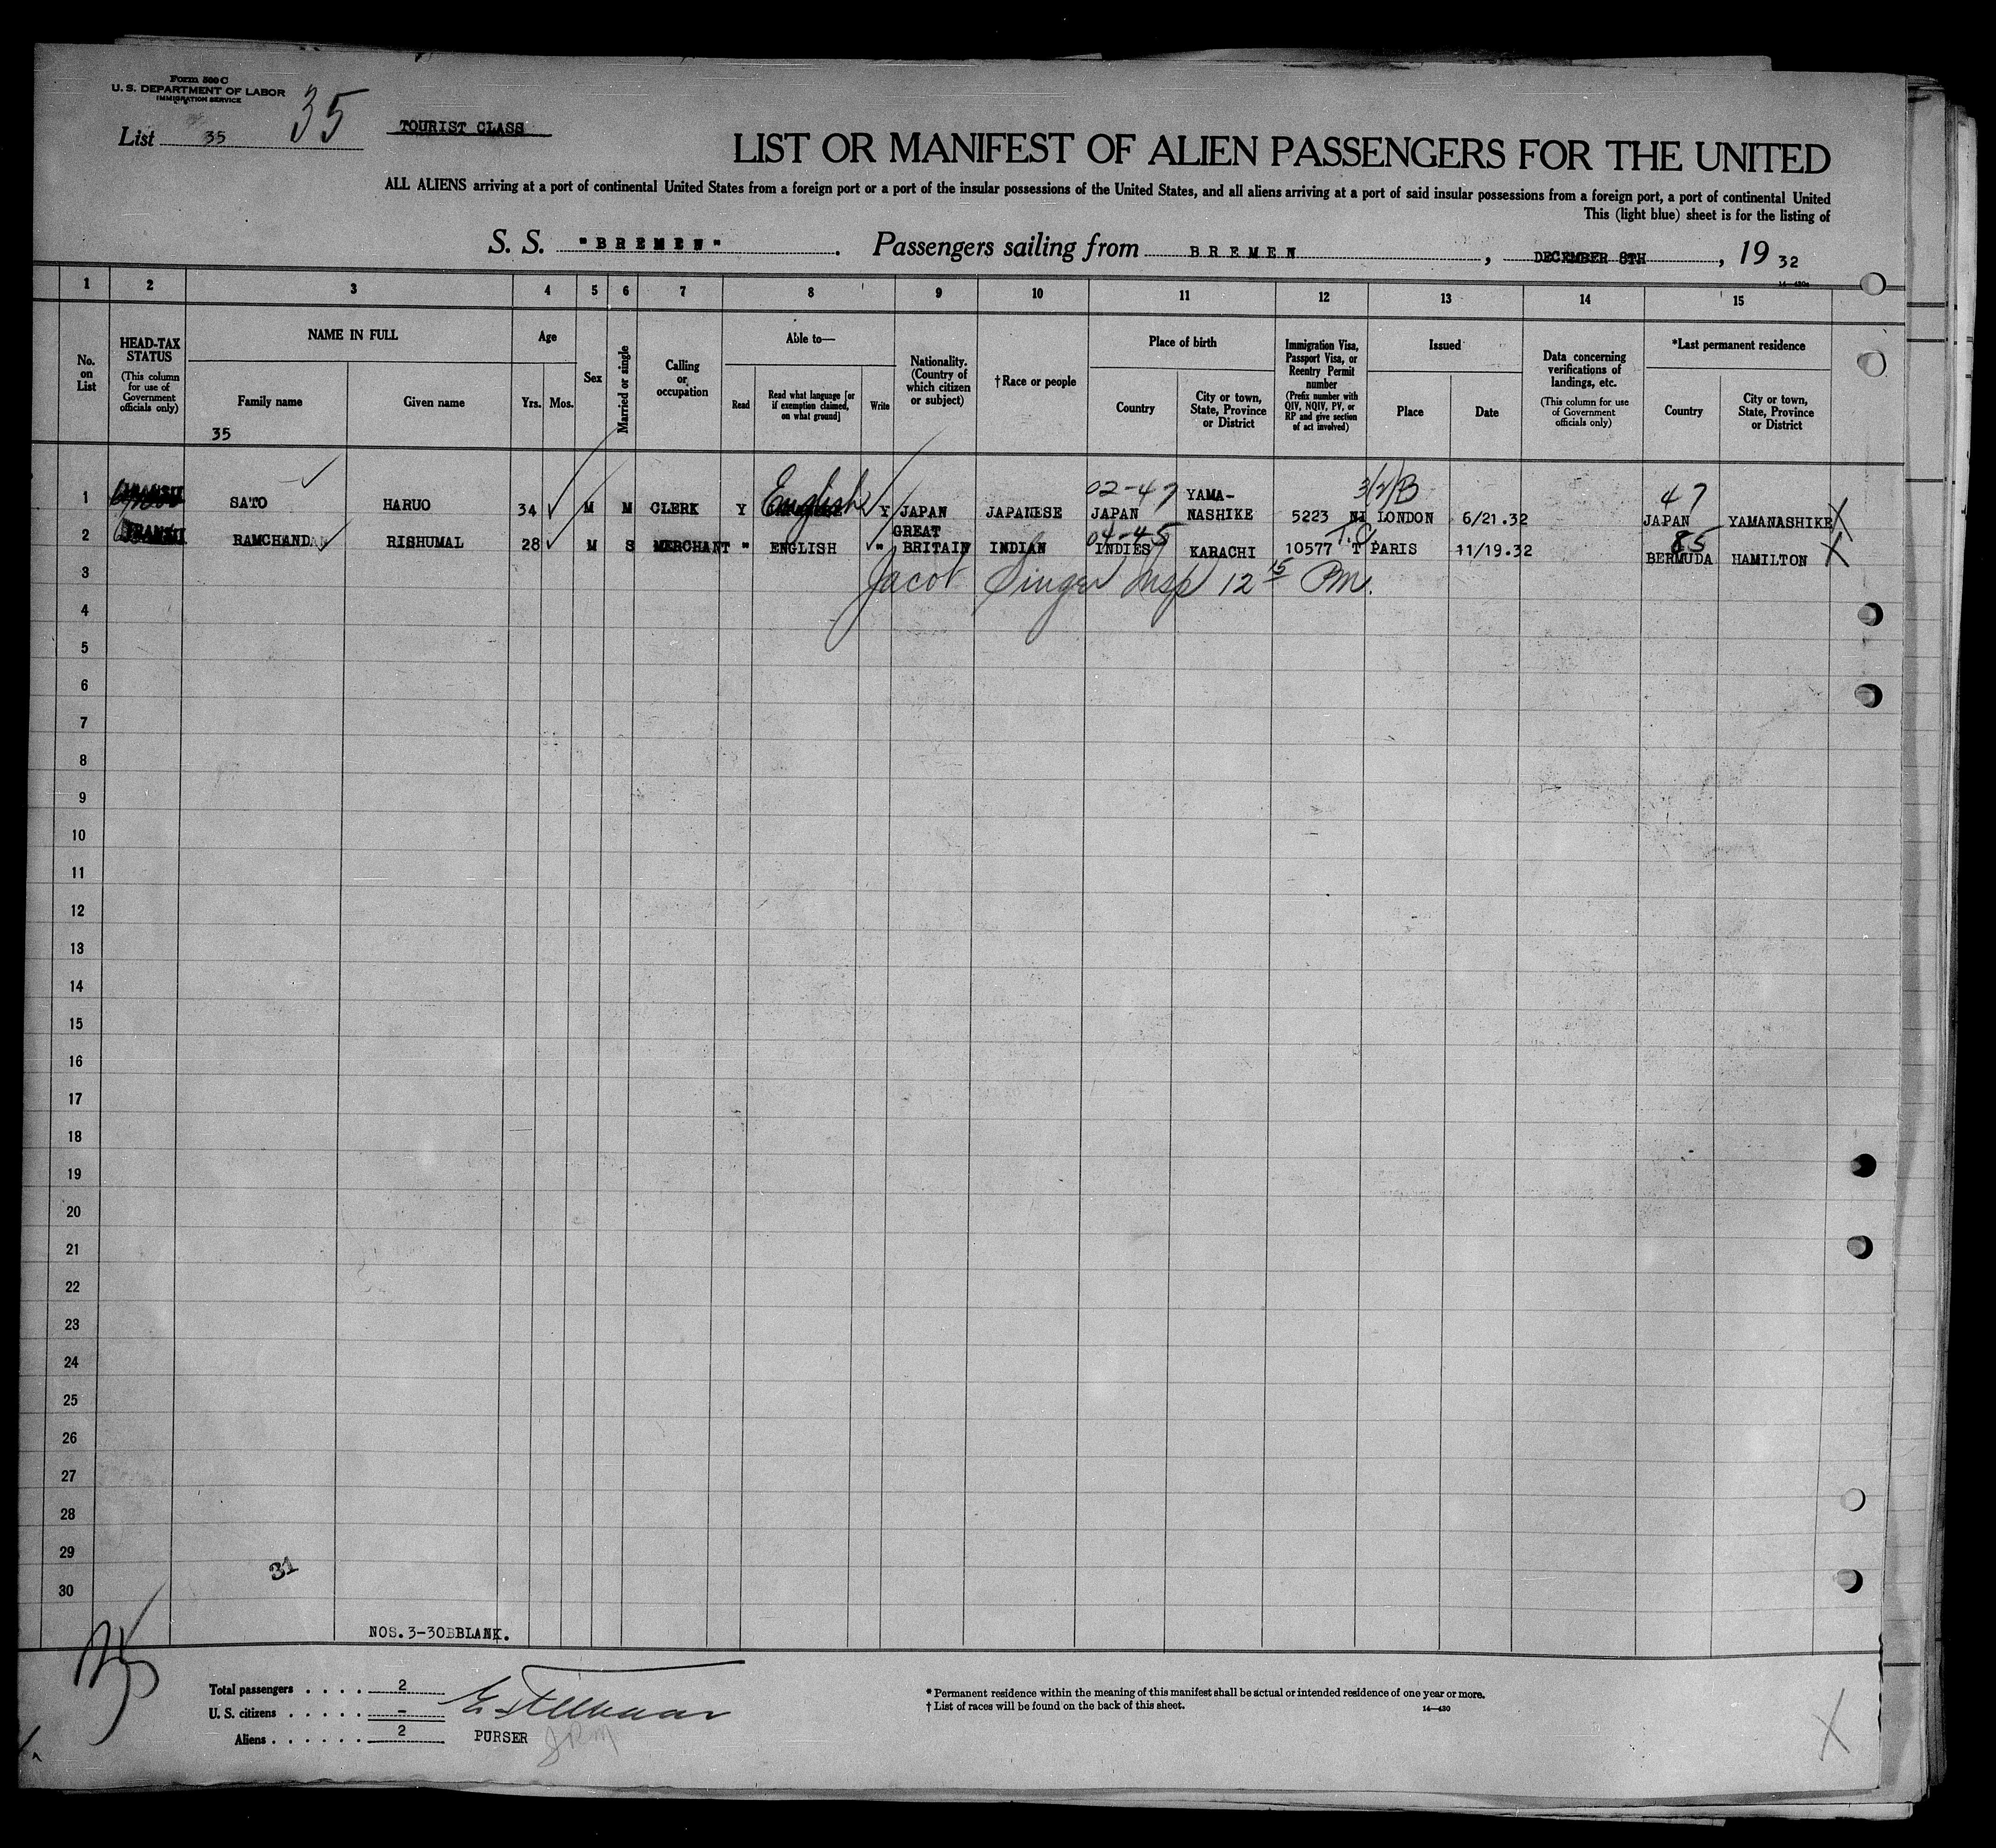 Form 500 C
U. S. DEPARTMENT OF LABOR
IMMIGRATION SERVICE
List 35
35
TOURIST CLASS
LIST OR MANIFEST OF ALIEN PASSENGERS FOR THE UNITED
ALL ALIENS arriving at a port of continental United States from a foreign port or a port of the insular possessions of the United States, and all aliens arriving at a port of said insular possessions from a foreign port, a port of continental United
This (light blue) sheet is for the listing of
S. S. "BREMEN". Passengers sailing from BREMEN, DECEMBER 8TH, 19 32
1 2 3 4 5 6 7 8 9 10 11 12 13 14 15
No. on List
HEAD-TAX STATUS
(This column for use of Government officials only)
NAME IN FULL
Family name
Given name
35
Age
Yrs. Mos.
Sex
Married or single
Calling or occupation
Able to—
Read
Read what language [or if exemption claimed, on what ground]
Write
Nationality. (Country of which citizen or subject)
†Race or people
Place of birth
Country
City or town, State, Province or District
Immigration Visa, Passport Visa, or Reentry Permit number
(Prefix number with QIV, NQIV, PV, or RP and give section of act involved)
Issued
Place
Date
Data concerning verifications of landings, etc.
(This column for use of Government officials only)
*Last permanent residence
Country
City or town, State, Province or District
02-47 YAMA- 3/2/B 47
1 TRANSIT SATO HARUO 34 M M CLERK Y English Y JAPAN JAPANESE JAPAN NASHIKE 5223 NI LONDON 6/21.32 JAPAN YAMANASHIKE X
GREAT 04-45 T.C. 85
2 TRANSIT RAMCHANDAN RISHUMAL 28 M S MERCHANT " ENGLISH " BRITAIN INDIAN INDIES KARACHI 10577 T PARIS 11/19.32 BERMUDA HAMILTON X
3 Jacob Singer Insp 12 15 PM.
4
5
6
7
8
9
10
11
12
13
14
15
16
17
18
19
20
21
22
23
24
25
26
27
28
29
31
30
NOS.3-30BBLANK.
Total passengers . . . . 2
U. S. citizens . . . . . . -
Aliens . . . . . . 2
PURSER
* Permanent residence within the meaning of this manifest shall be actual or intended residence of one year or more.
† List of races will be found on the back of this sheet.
14—430
X